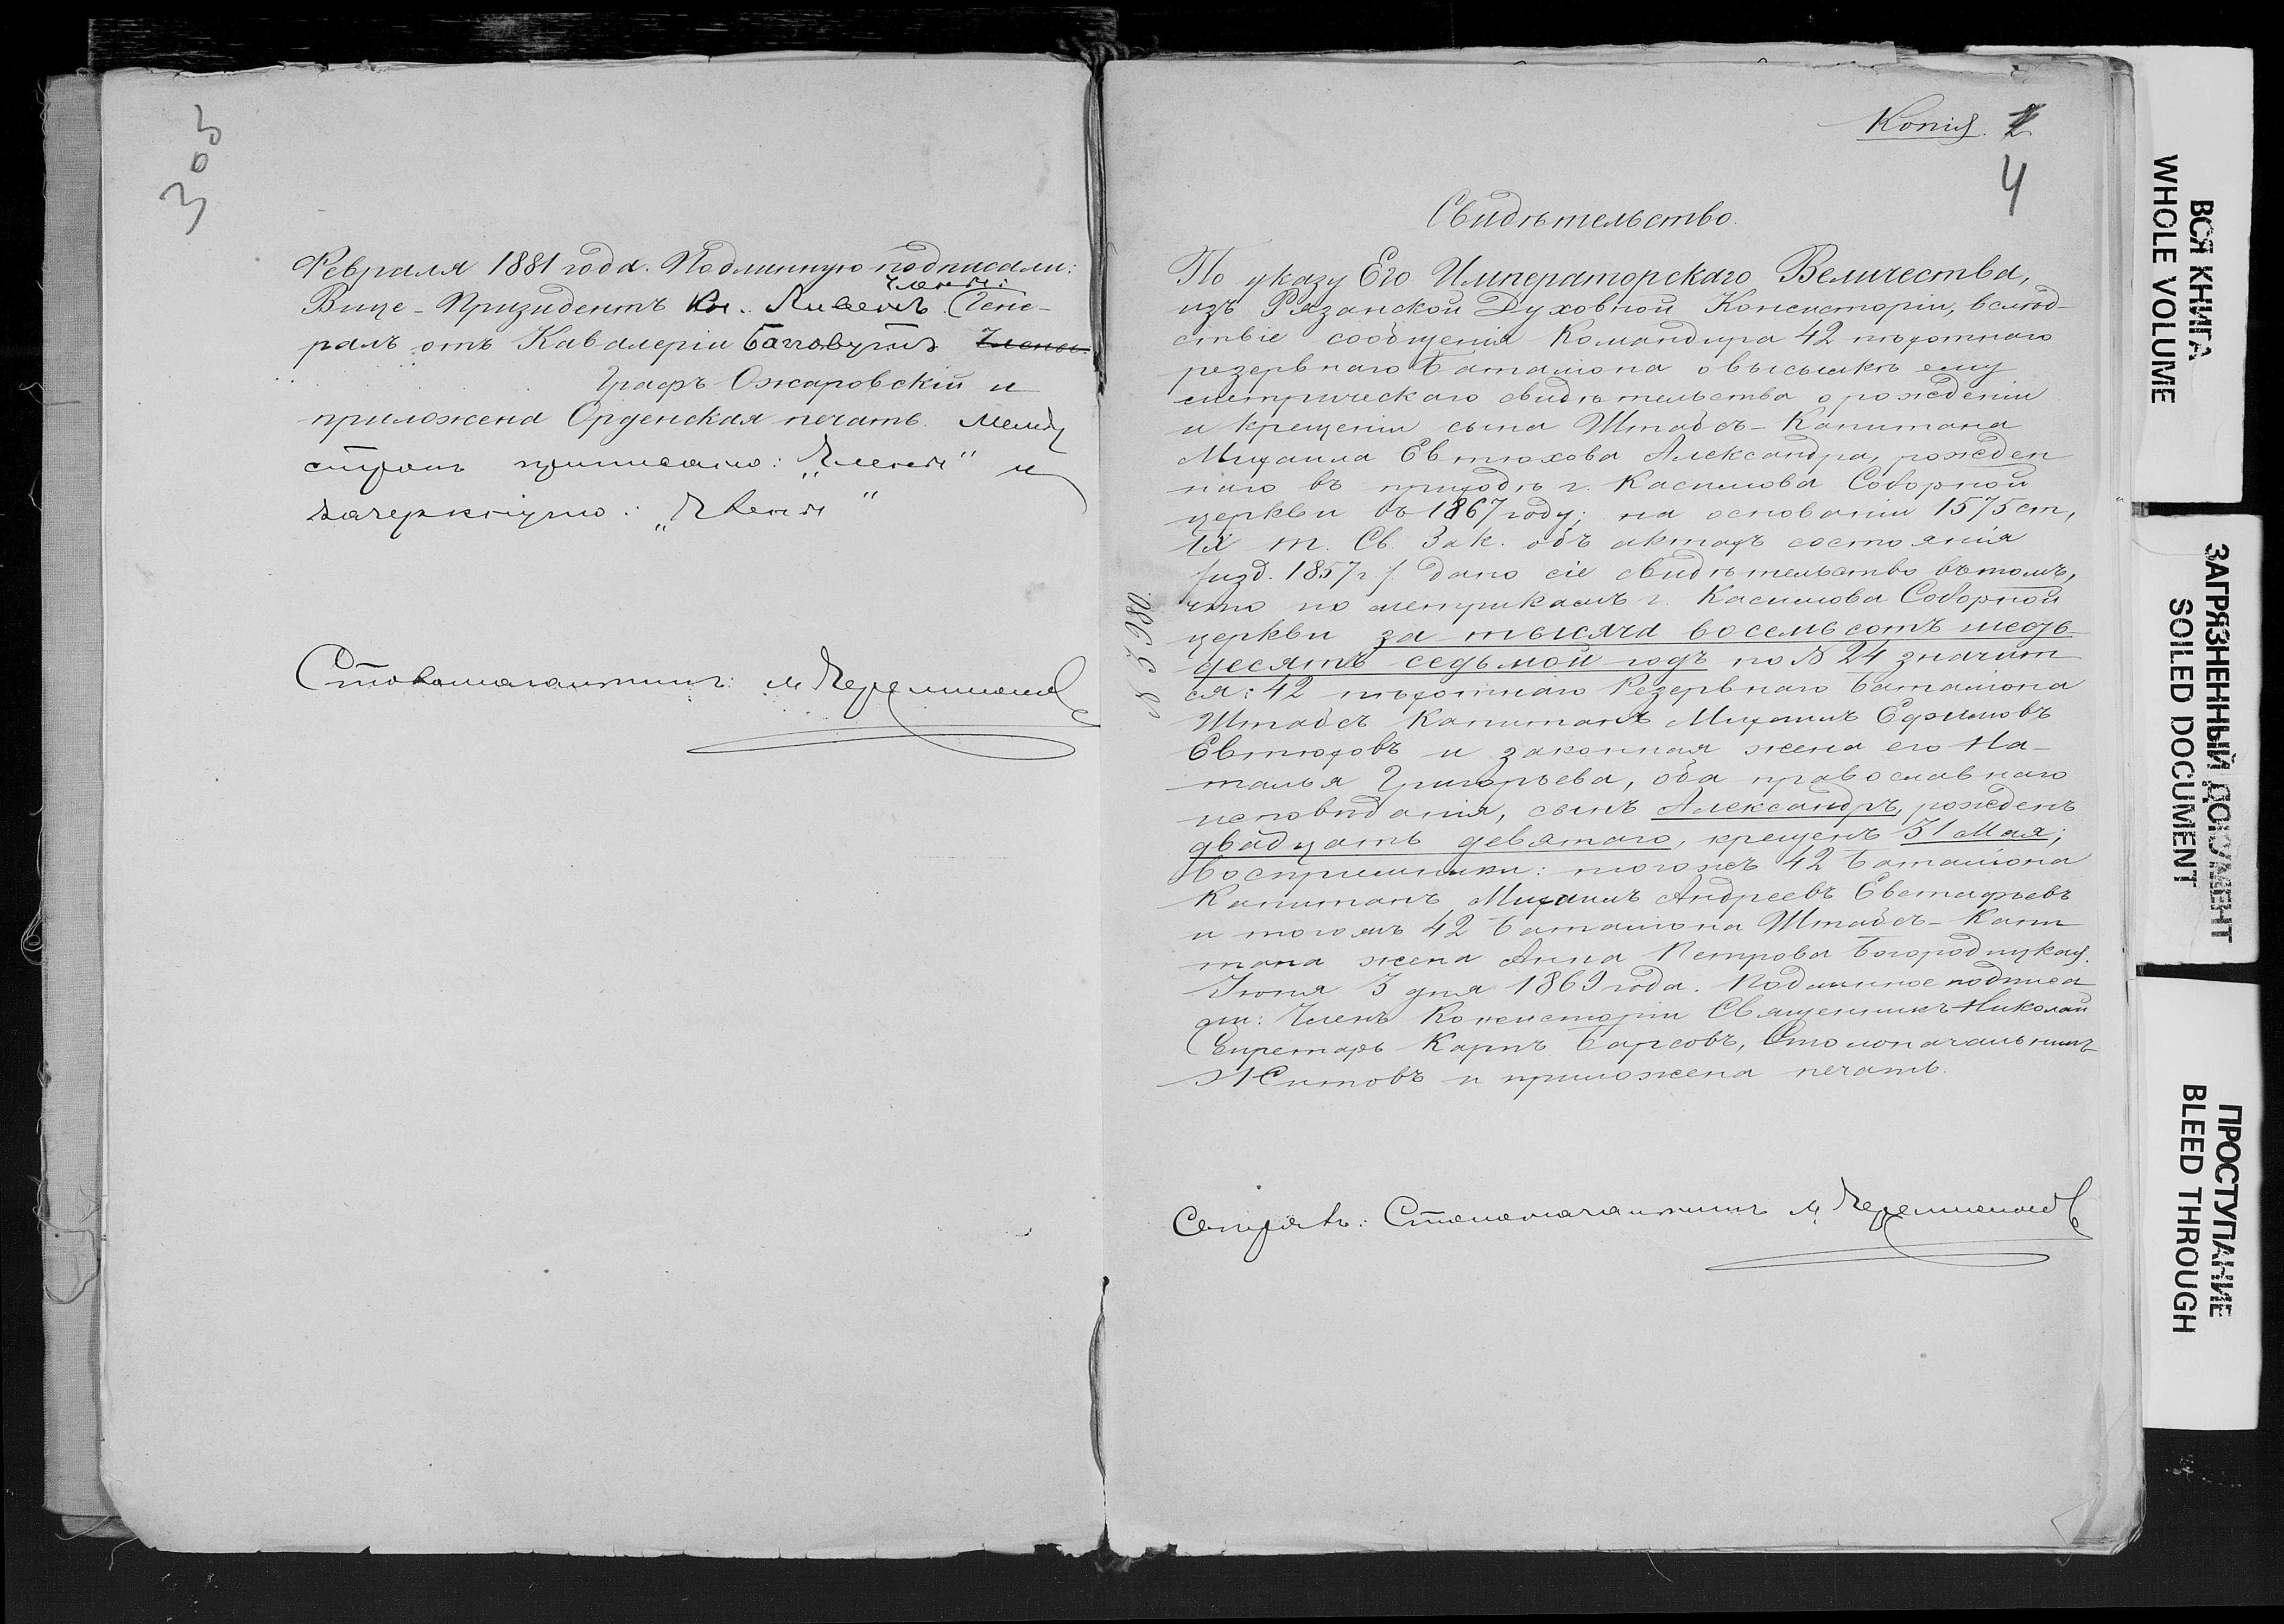 303
Февраля 1881 года. Подлинную подписали:
Члены:
Вице-Призидентъ Кн. Ливенъ Гене-
ралъ отъ Кавалеріи Багговутъ Члены
Графъ Ожаровскій и
приложена Орденская печать. Между
строкъ приписано: "Члены" и
зачеркнуто: "Члены"
Столоначальникъ: М
Копія. 2
4
Свидѣтельство.
По указу Его Императорскаго Величества,
изъ Рязанской Духовной Консисторіи, вслѣд-
ствіе сообщенія Командира 42 пѣхотнаго
резервнаго баталіона о высылкѣ ему
метрическаго свидѣтельства о рожденіи
и крещеніи сына Штабсъ-Капитана
Михаила Евтюхова Александра, рожден
наго въ приходѣ г. Касимова Соборной
церкви въ 1867 году; на основаніи 1575 ст,
IX т. Св. Зак. объ актахъ состоянія
/изд. 1857 г./ дано сіе свидѣтельство въ томъ,
что по метрикамъ г. Касимова Соборной
церкви за тысяча восемьсотъ шесть-
десятъ седьмой годъ по № 24 значит
ся: 42 пѣхотнаго Резервнаго баталіона
Штабсъ Капитанъ Михаилъ Ефимовъ
Евтюховъ и законная жена его На-
талья Григорьева, оба православнаго
исповѣданія, сынъ Александръ, рожденъ
двадцать девятаго, крещенъ 31 Мая;
Воспріемники: тогожъ 42 баталіона
Капитанъ Михаилъ Андреевъ Евстафьевъ
и тогожъ 42 баталіона Штабсъ-Капи
тана жена Анна Петрова Богородицкая.
Іюня 3 дня 1869 года. Подлинное подписа
ли: Членъ Консисторіи Священникъ Николай
Секретарь Карпъ Барсовъ, Столоначальникъ
Ситовъ и приложена печать.
№ 5980
Столоначальникъ М
ВСЯ КНИГА
WHOLE VOLUME
ЗАГРЯЗНЕННЫЙ ДОКУМЕНТ
SOILED DOCUMENT
ПРОСТУПАНИЕ
BLEED THROUGH